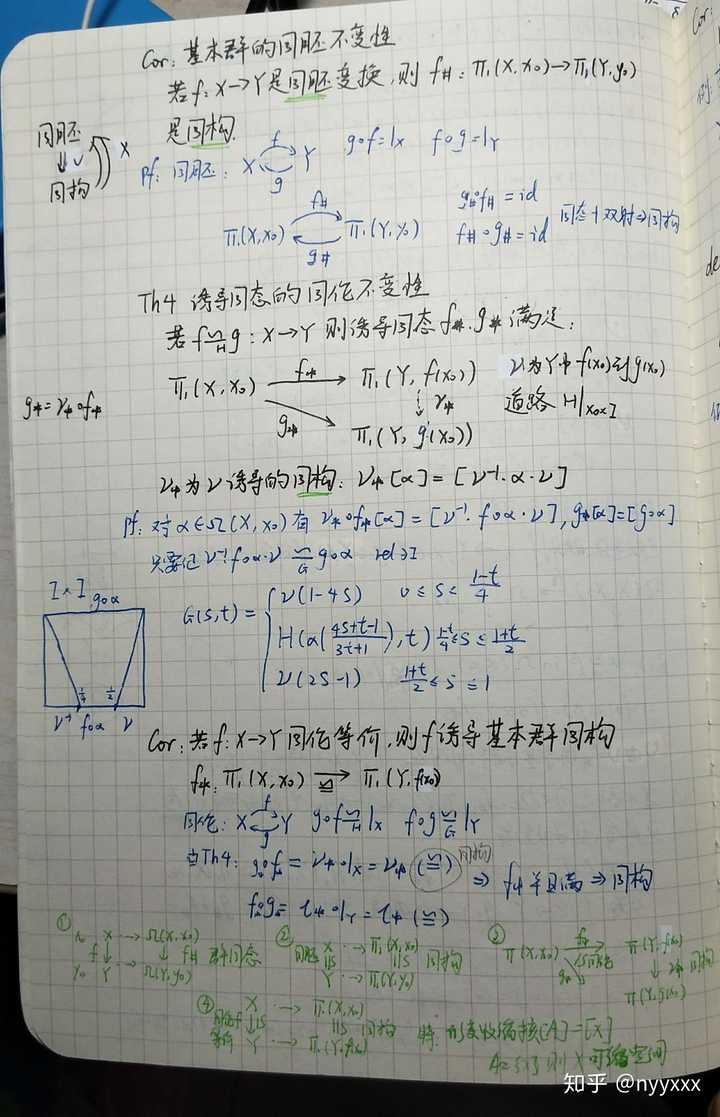 Cor: 基本群的同胚不变性
若f: X→Y是同胚变换, 则 f#: π₁(X, x₀)→π₁(Y, y₀)
是同构.
同胚
⇓ ✓ X
同构
Pf: 同胚: X Y g∘f=1x f∘g=1Y
f
g
π₁(X, x₀) π₁(Y, y₀)
f#
g#
g#∘f# = id
f#∘g# = id
同态+双射⇒同构
Th4 诱导同态的同伦不变性
若 f≃g: X→Y 则诱导同态 f#, g# 满足:
H
π₁(X, x₀) f# → π₁(Y, f(x₀)) ν为Y中f(x₀)到g(x₀)
g# ν# 道路 H|x₀×I
π₁(Y, g(x₀))
g#=ν#∘f#
ν#为ν诱导的同构: ν#[α] = [ν⁻¹·α·ν]
Pf: 对α∈Ω(X, x₀)有 ν#∘f#[α] = [ν⁻¹·f∘α·ν], g#[α]=[g∘α]
只要证 ν⁻¹·f∘α·ν ≃ g∘α rel ∂I
G
I×I g∘α
G(s,t) = ν(1-4s) 0≤s≤ (1-t)/4
H(α((4s+t-1)/(3t+1)), t) (1-t)/4≤s≤(1+t)/2
ν(2s-1) (1+t)/2≤s≤1
1/4 1/2
ν⁻¹ f∘α ν
Cor: 若f: X→Y同伦等价, 则f诱导基本群同构
f#: π₁(X, x₀) ≅→ π₁(Y, f(x₀))
同伦: X Y g∘f≃1x f∘g≃1Y
f
g
H
G
由Th4: g#∘f# = ν#∘1x = ν# (≅) 同构 ⇒ f#单且满⇒同构
f#∘g# = τ#∘1Y = τ# (≅)
① x₀ X → Ω(X, x₀)
f ↓ ↓ f# 群同态
y₀ Y → Ω(Y, y₀)
② 同胚 X → π₁(X, x₀)
同构
Y → π₁(Y, y₀)
③ π(X, x₀) f# → π(Y, f(x₀))
g# ↓ ν# 同构
π(Y, g(x₀))
④ X → π₁(X, x₀)
同伦f 同构
等价 Y → π₁(Y, f(x₀))
特: 形变收缩核[A]=[X]
则X可缩空间
知乎 @nyyxxx